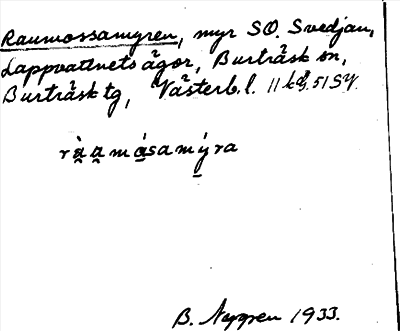 Raumossamyren, myr SO. Svedjan,
Lappvattnets ägor, Burträsk sn,
Burträsk tg, Västerb. l. 11 kg. 51 SV.
rà̱a̱má̱samý̱ra
B. Nygren 1933.